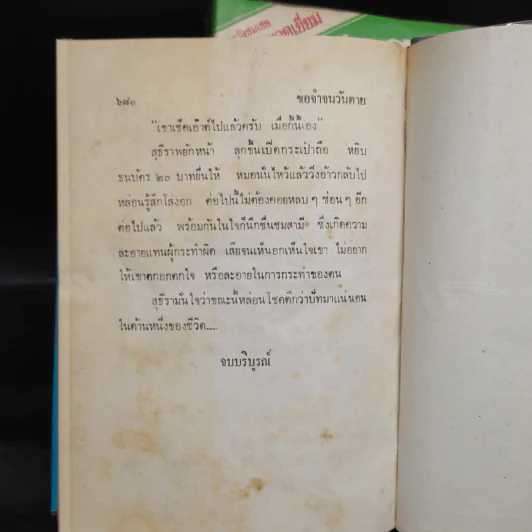 ยอดเยี่ยม
๖๘๐ ขอจำจนวันตาย
"เขาเช็คเอ๊าต์ไปแล้วครับ เมื่อกี้นี้เอง"
สุธีราพยักหน้า ลุกขึ้นเปิดกระเป๋าถือ หยิบ
ธนบัตร ๒๐ บาทยื่นให้ หมอนั่นไหว้แล้ววิ่งอ้าวกลับไป
หล่อนรู้สึกโล่งอก ต่อไปนี้ไม่ต้องคอยหลบ ๆ ซ่อน ๆ อีก
ต่อไปแล้ว พร้อมกันในใจก็นึกชื่นชมสามี ซึ่งเกิดความ
ละอายแทนผู้กระทำผิด เสียจนเห็นอกเห็นใจเขา ไม่อยาก
ให้เขาตกอกตกใจ หรือละอายในการกระทำของตน
สุธีรามั่นใจว่าขณะนี้หล่อนโชคดีกว่าปัทมาแน่นอน
ในด้านหนึ่งของชีวิต....
จบบริบูรณ์